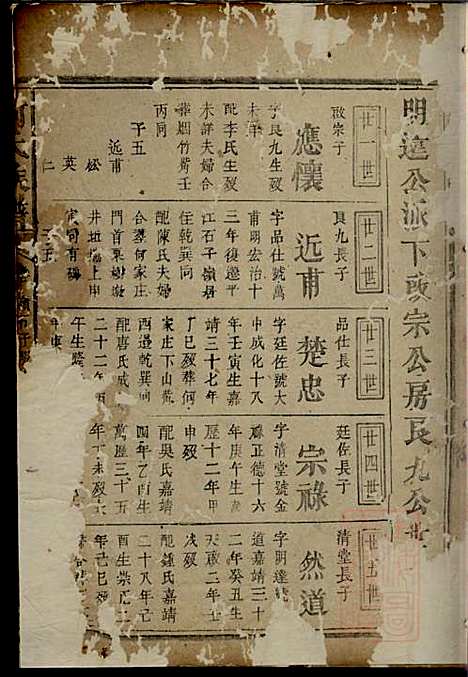 明達公派下政宗公房良九公世
廿一世
政宗子
應懷
字良九生歿
未詳
配李氏生歿
未詳夫婦合
葬烟竹觜壬
丙同
子五
近甫
松
英
仁
廿二世
良九長子
近甫
字品仕號萬
甫明宏治十
三年復遷平
江石子嶺居
住乾巽同
配陳氏夫婦
合塟何家庄
門首菓樹
井坵墈上申
寅同有碑
廿三世
品仕長子
楚忠
字廷佐號大
中成化十八
年壬寅生嘉
靖三十七年
丁巳歿葬何
家庄下山虎
西邊乾巽同
配唐氏成
二十二年
午生隆
廿四世
廷佐長子
宗祿
字清堂號金
正德十六
年庚午生
歷十二年甲
申歿
配吳氏嘉靖
四年乙酉生
萬歷三十五
年丁未歿
廿五世
清堂長子
然道
字明達
道嘉靖三十
二年癸丑生
天啟二年
戌歿
配鍾氏嘉靖
三十八年己
酉生崇
年己巳歿